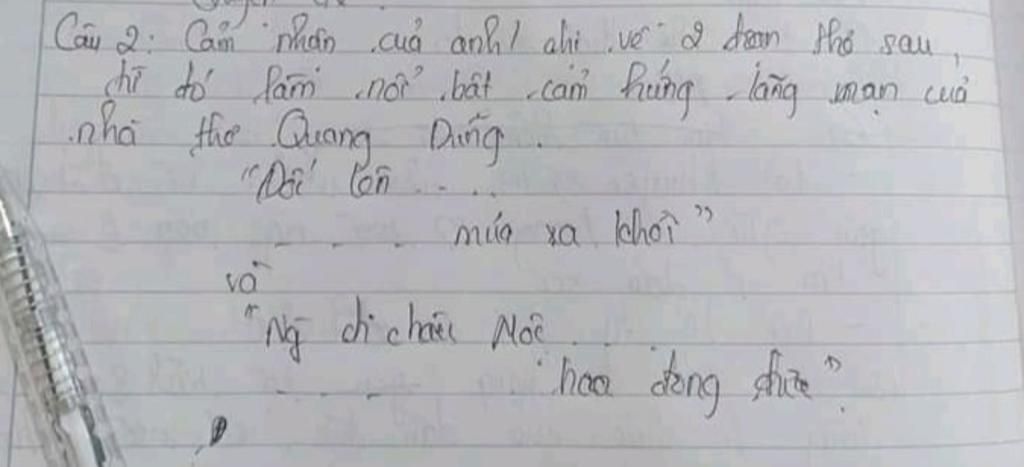 Câu 2: Cảm nhận của anh/ chị về 2 đoạn thơ sau,
từ đó làm nổi bật cảm hứng lãng mạn của
nhà thơ Quang Dũng.
"Dốc lên ....
- - - mưa xa khơi"
và
"Ng đi châu Mộc ...
- - - hoa đong đưa".